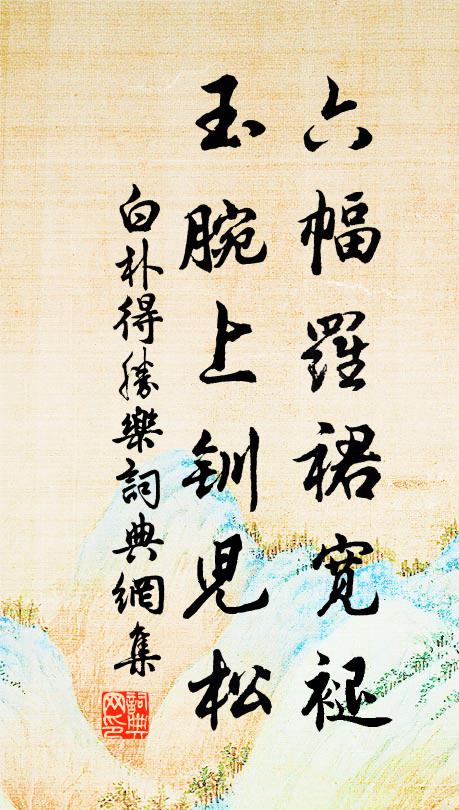 六幅羅裙宽褪
玉腕上釧児松
白朴得勝樂詞典網集
詞典网印